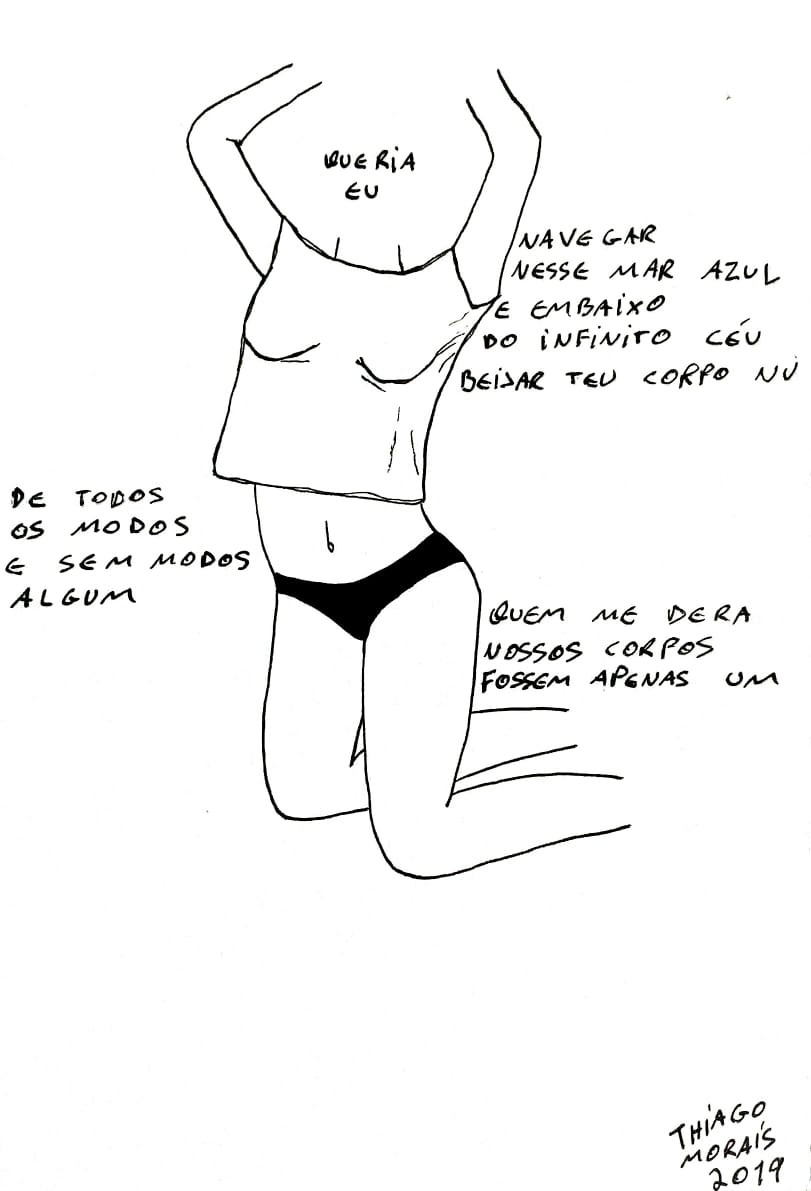 QUERIA
EU
NAVEGAR
NESSE MAR AZUL
E EMBAIXO
DO INFINITO CÉU
BEIJAR TEU CORPO NÚ
DE TODOS
OS MODOS
E SEM MODOS
ALGUM
QUEM ME DERA
NOSSOS CORPOS
FOSSEM APENAS UM
THIAGO
MORAIS
2019